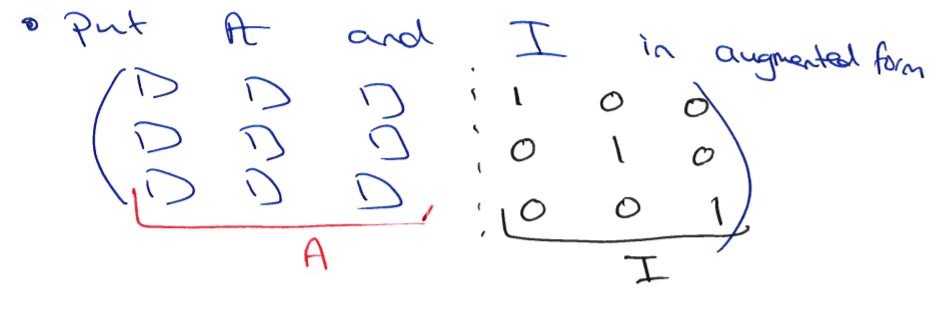 • Put A and I in augmented form
( D D D ⋮ 1 0 0 )
D D D ⋮ 0 1 0
D D D ⋮ 0 0 1
A I